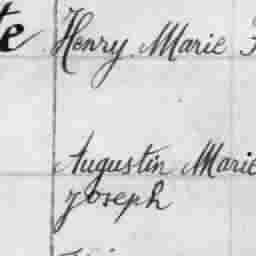 te Henry Marie
Augustin Marie
Joseph